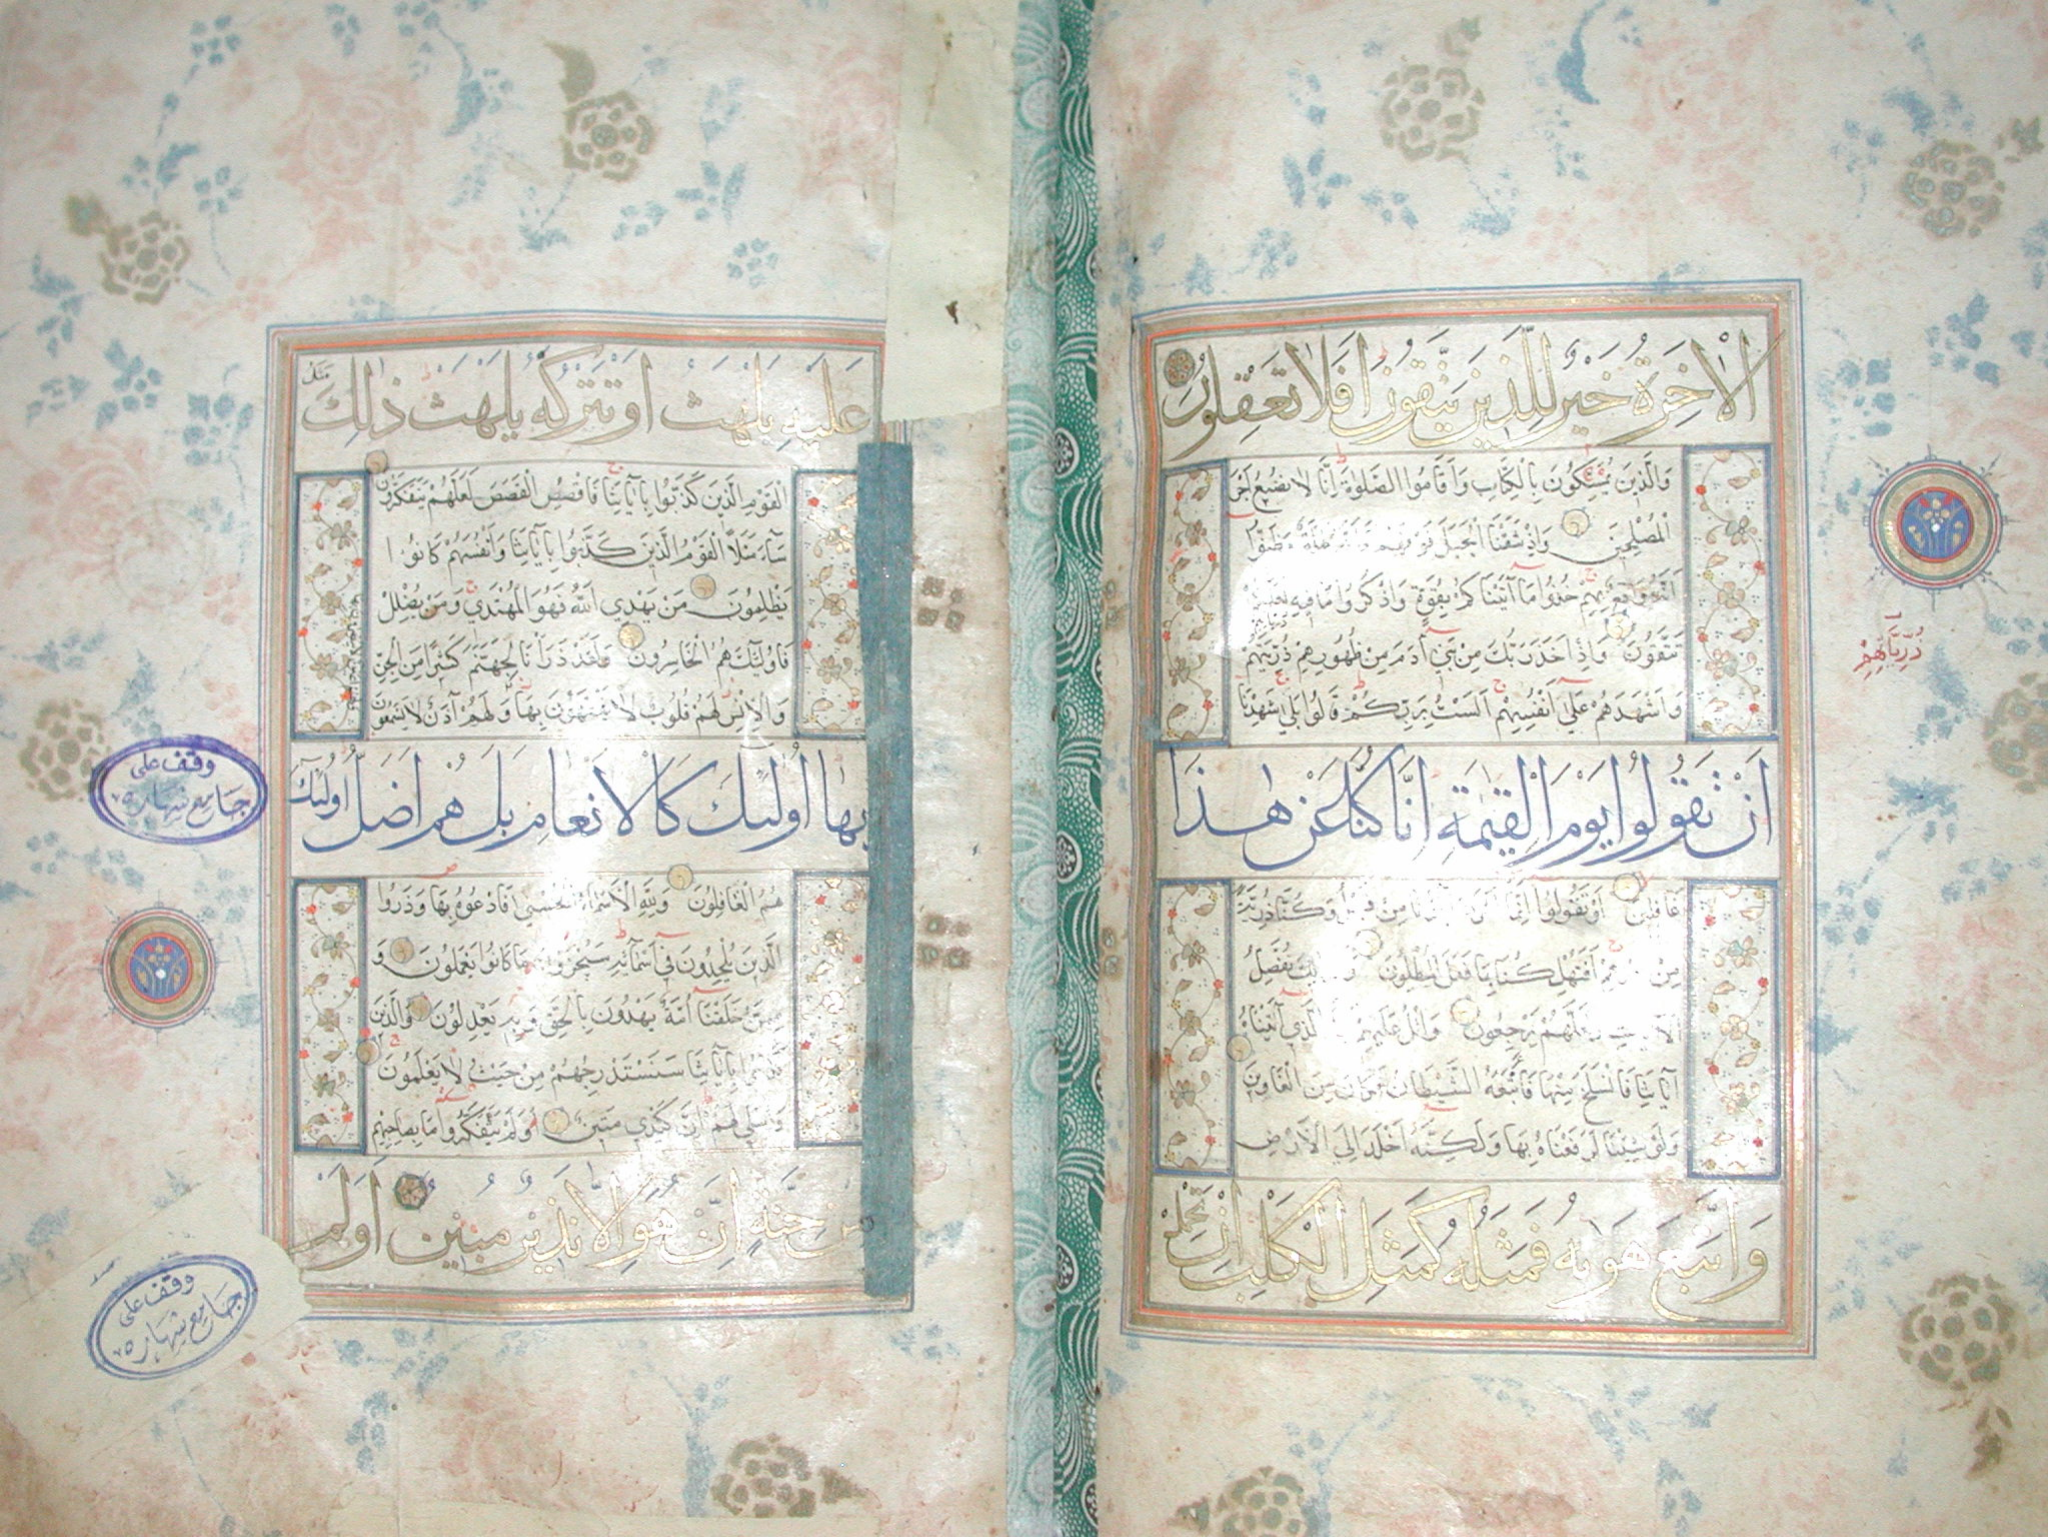 الاخرة خير للذين يتقون افلا تعقلون
وَالَّذِينَ يُمَسِّكُونَ بِالْكِتَابِ وَأَقَامُوا الصَّلٰوةَ إِنَّا لَا نُضِيعُ أَجْرَ
الْمُصْلِحِينَ وَإِذْ نَتَقْنَا الْجَبَلَ فَوْقَهُمْ كَأَنَّهُ ظُلَّةٌ وَظَنُّوا
أَنَّهُ وَاقِعٌ بِهِمْ خُذُوا مَا آتَيْنَاكُمْ بِقُوَّةٍ وَاذْكُرُوا مَا فِيهِ لَعَلَّكُمْ
تَتَّقُونَ وَإِذْ أَخَذَ رَبُّكَ مِنْ بَنِي آدَمَ مِنْ ظُهُورِهِمْ ذُرِّيَّتَهُمْ
وَأَشْهَدَهُمْ عَلَى أَنْفُسِهِمْ أَلَسْتُ بِرَبِّكُمْ قَالُوا بَلَى شَهِدْنَا
اَنْ تَقُولُوا يَوْمَ الْقِيٰمَةِ اِنَّا كُنَّا عَنْ هٰذَا
غَافِلِينَ أَوْ تَقُولُوا إِنَّمَا أَشْرَكَ آبَاؤُنَا مِنْ قَبْلُ وَكُنَّا ذُرِّيَّةً
مِنْ بَعْدِهِمْ أَفَتُهْلِكُنَا بِمَا فَعَلَ الْمُبْطِلُونَ وَكَذَلِكَ نُفَصِّلُ
الْآيَاتِ وَلَعَلَّهُمْ يَرْجِعُونَ وَاتْلُ عَلَيْهِمْ نَبَأَ الَّذِي آتَيْنَاهُ
آيَاتِنَا فَانْسَلَخَ مِنْهَا فَأَتْبَعَهُ الشَّيْطَانُ فَكَانَ مِنَ الْغَاوِينَ
وَلَوْ شِئْنَا لَرَفَعْنَاهُ بِهَا وَلَكِنَّهُ أَخْلَدَ إِلَى الْأَرْضِ
وَاتَّبَعَ هَوٰيهُ فَمَثَلُهُ كَمَثَلِ الْكَلْبِ اِنْ تَحْمِلْ
ذُرِّيَّاتِهِمْ
عَلَيْهِ يَلْهَثْ اَوْ تَتْرُكْهُ يَلْهَثْ ذٰلِكَ مَثَلُ
الْقَوْمِ الَّذِينَ كَذَّبُوا بِآيَاتِنَا فَاقْصُصِ الْقَصَصَ لَعَلَّهُمْ يَتَفَكَّرُونَ
سَاءَ مَثَلًا الْقَوْمُ الَّذِينَ كَذَّبُوا بِآيَاتِنَا وَأَنْفُسَهُمْ كَانُوا
يَظْلِمُونَ مَنْ يَهْدِي اللَّهُ فَهُوَ الْمُهْتَدِي وَمَنْ يُضْلِلْ
فَأُولَئِكَ هُمُ الْخَاسِرُونَ وَلَقَدْ ذَرَأْنَا لِجَهَنَّمَ كَثِيرًا مِنَ الْجِنِّ
وَالْإِنْسِ لَهُمْ قُلُوبٌ لَا يَفْقَهُونَ بِهَا وَلَهُمْ آذَانٌ لَا يَسْمَعُونَ
بِهَا اُولٰئِكَ كَالْاَنْعَامِ بَلْ هُمْ اَضَلُّ اُولٰئِكَ
هُمُ الْغَافِلُونَ وَلِلَّهِ الْأَسْمَاءُ الْحُسْنَى فَادْعُوهُ بِهَا وَذَرُوا
الَّذِينَ يُلْحِدُونَ فِي أَسْمَائِهِ سَيُجْزَوْنَ مَا كَانُوا يَعْمَلُونَ وَ
مِمَّنْ خَلَقْنَا أُمَّةٌ يَهْدُونَ بِالْحَقِّ وَبِهِ يَعْدِلُونَ وَالَّذِينَ
كَذَّبُوا بِآيَاتِنَا سَنَسْتَدْرِجُهُمْ مِنْ حَيْثُ لَا يَعْلَمُونَ
وَأُمْلِي لَهُمْ إِنَّ كَيْدِي مَتِينٌ أَوَلَمْ يَتَفَكَّرُوا مَا بِصَاحِبِهِمْ
مِنْ جِنَّةٍ اِنْ هُوَ اِلَّا نَذِيرٌ مُبِينٌ اَوَلَمْ
وقف على
جامع شهاره
وقف على
جامع شهاره